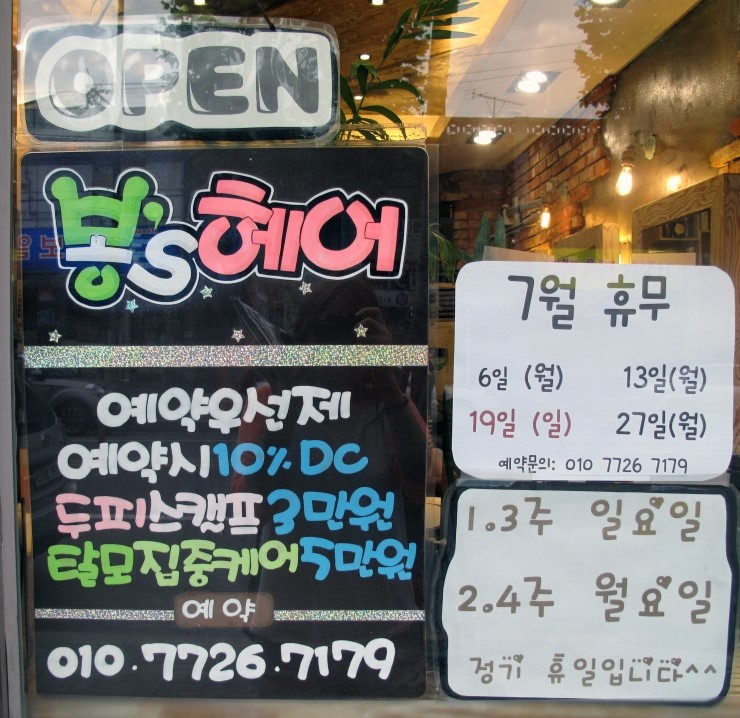 OPEN
봉's헤어
예약우선제
예약시10% DC
두피스캔프 3만원
탈모집중케어 5만원
예약
010.7726.7179
7월 휴무
6일 (월) 13일(월)
19일 (일) 27일(월)
예약문의: 010 7726 7179
1.3주 일요일
2.4주 월요일
정기 휴일입니다^^